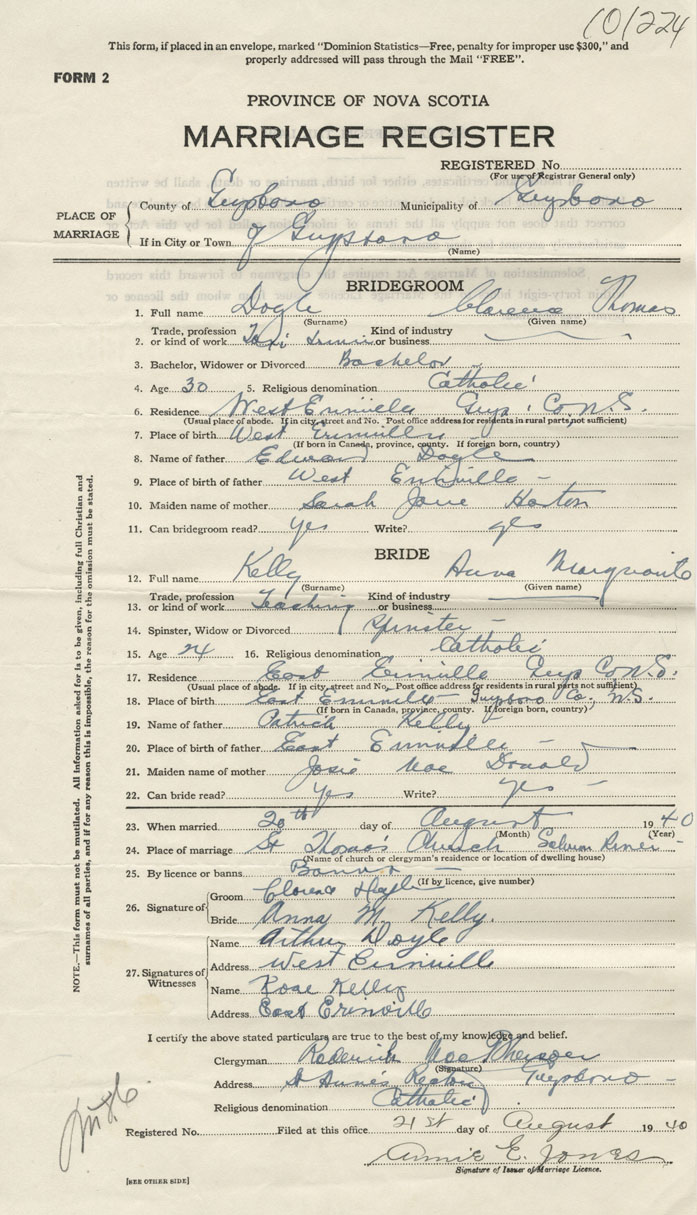 101224
This form, if placed in an envelope, marked "Dominion Statistics—Free, penalty for improper use $300," and
properly addressed will pass through the Mail "FREE".
FORM 2
PROVINCE OF NOVA SCOTIA
MARRIAGE REGISTER
REGISTERED No.
(For use of Registrar General only)
PLACE OF MARRIAGE
County of Guysboro Municipality of Guysboro
If in City or Town of Guysboro
(Name)
BRIDEGROOM
1. Full name Doyle Clarence Thomas
(Surname) (Given name)
Trade, profession Kind of industry
2. or kind of work Taxi or business
3. Bachelor, Widower or Divorced Bachelor
4. Age 30 5. Religious denomination Catholic
6. Residence West Erinville Guys. Co. N.S.
(Usual place of abode. If in city, street and No. Post office address for residents in rural parts not sufficient)
7. Place of birth West Erinville
(If born in Canada, province, county. If foreign born, country)
8. Name of father Edward Doyle
9. Place of birth of father West Erinville
10. Maiden name of mother Sarah Jane Horton
11. Can bridegroom read? Yes Write? yes
BRIDE
12. Full name Kelly Anna Marguerite
(Surname) (Given name)
Trade, profession Kind of industry
13. or kind of work Teaching or business
14. Spinster, Widow or Divorced Spinster
15. Age 24 16. Religious denomination Catholic
17. Residence East Erinville Guys Co N.S.
(Usual place of abode. If in city, street and No. Post office address for residents in rural parts not sufficient)
18. Place of birth East Erinville Guysboro Co., N.S.
(If born in Canada, province, county. If foreign born, country)
19. Name of father Patrick Kelly
20. Place of birth of father East Erinville
21. Maiden name of mother Josie Mac Donald
22. Can bride read? Yes Write? yes
23. When married 20th day of August 1940
(Month) (Year)
24. Place of marriage St Thomas Church Salmon River
(Name of church or clergyman's residence or location of dwelling house)
25. By licence or banns Banns
(If by licence, give number)
26. Signature of
Groom Clarence Doyle
Bride Anna M. Kelly.
27. Signatures of Witnesses
Name Arthur Doyle
Address West Erinville
Name Rose Kelly
Address East Erinville
I certify the above stated particulars are true to the best of my knowledge and belief.
Clergyman Roderick MacPherson
(Signature)
Address St Anne's Rectory Guysboro
Religious denomination Catholic
Registered No. Filed at this office 21st day of August 1940
Annie E. Jones
Signature of Issuer of Marriage Licence.
[SEE OTHER SIDE]
NOTE.—This form must not be mutilated. All information asked for is to be given, including full Christian and
surnames of all parties, and if for any reason this is impossible, the reason for the omission must be stated.